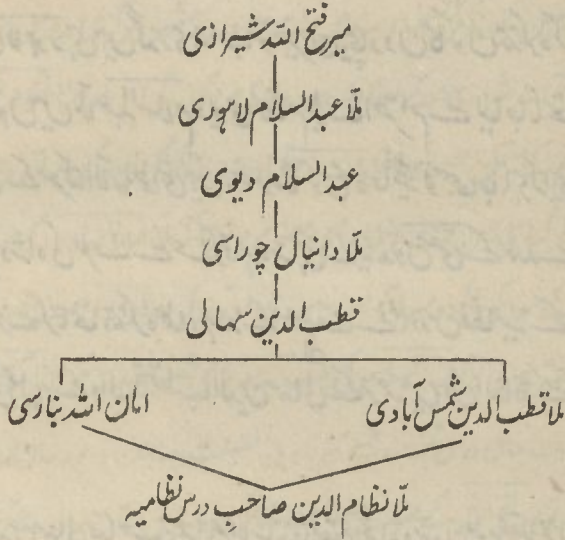 میر فتح اللہ شیرازی
ملّا عبدالسلام لاہوری
عبدالسلام دیوی
ملّا دانیال چوراسی
قطب الدین سہالی
ملا قطب الدین شمس آبادی
امان اللہ بنارسی
ملّا نظام الدین صاحبِ درس نظامیہ